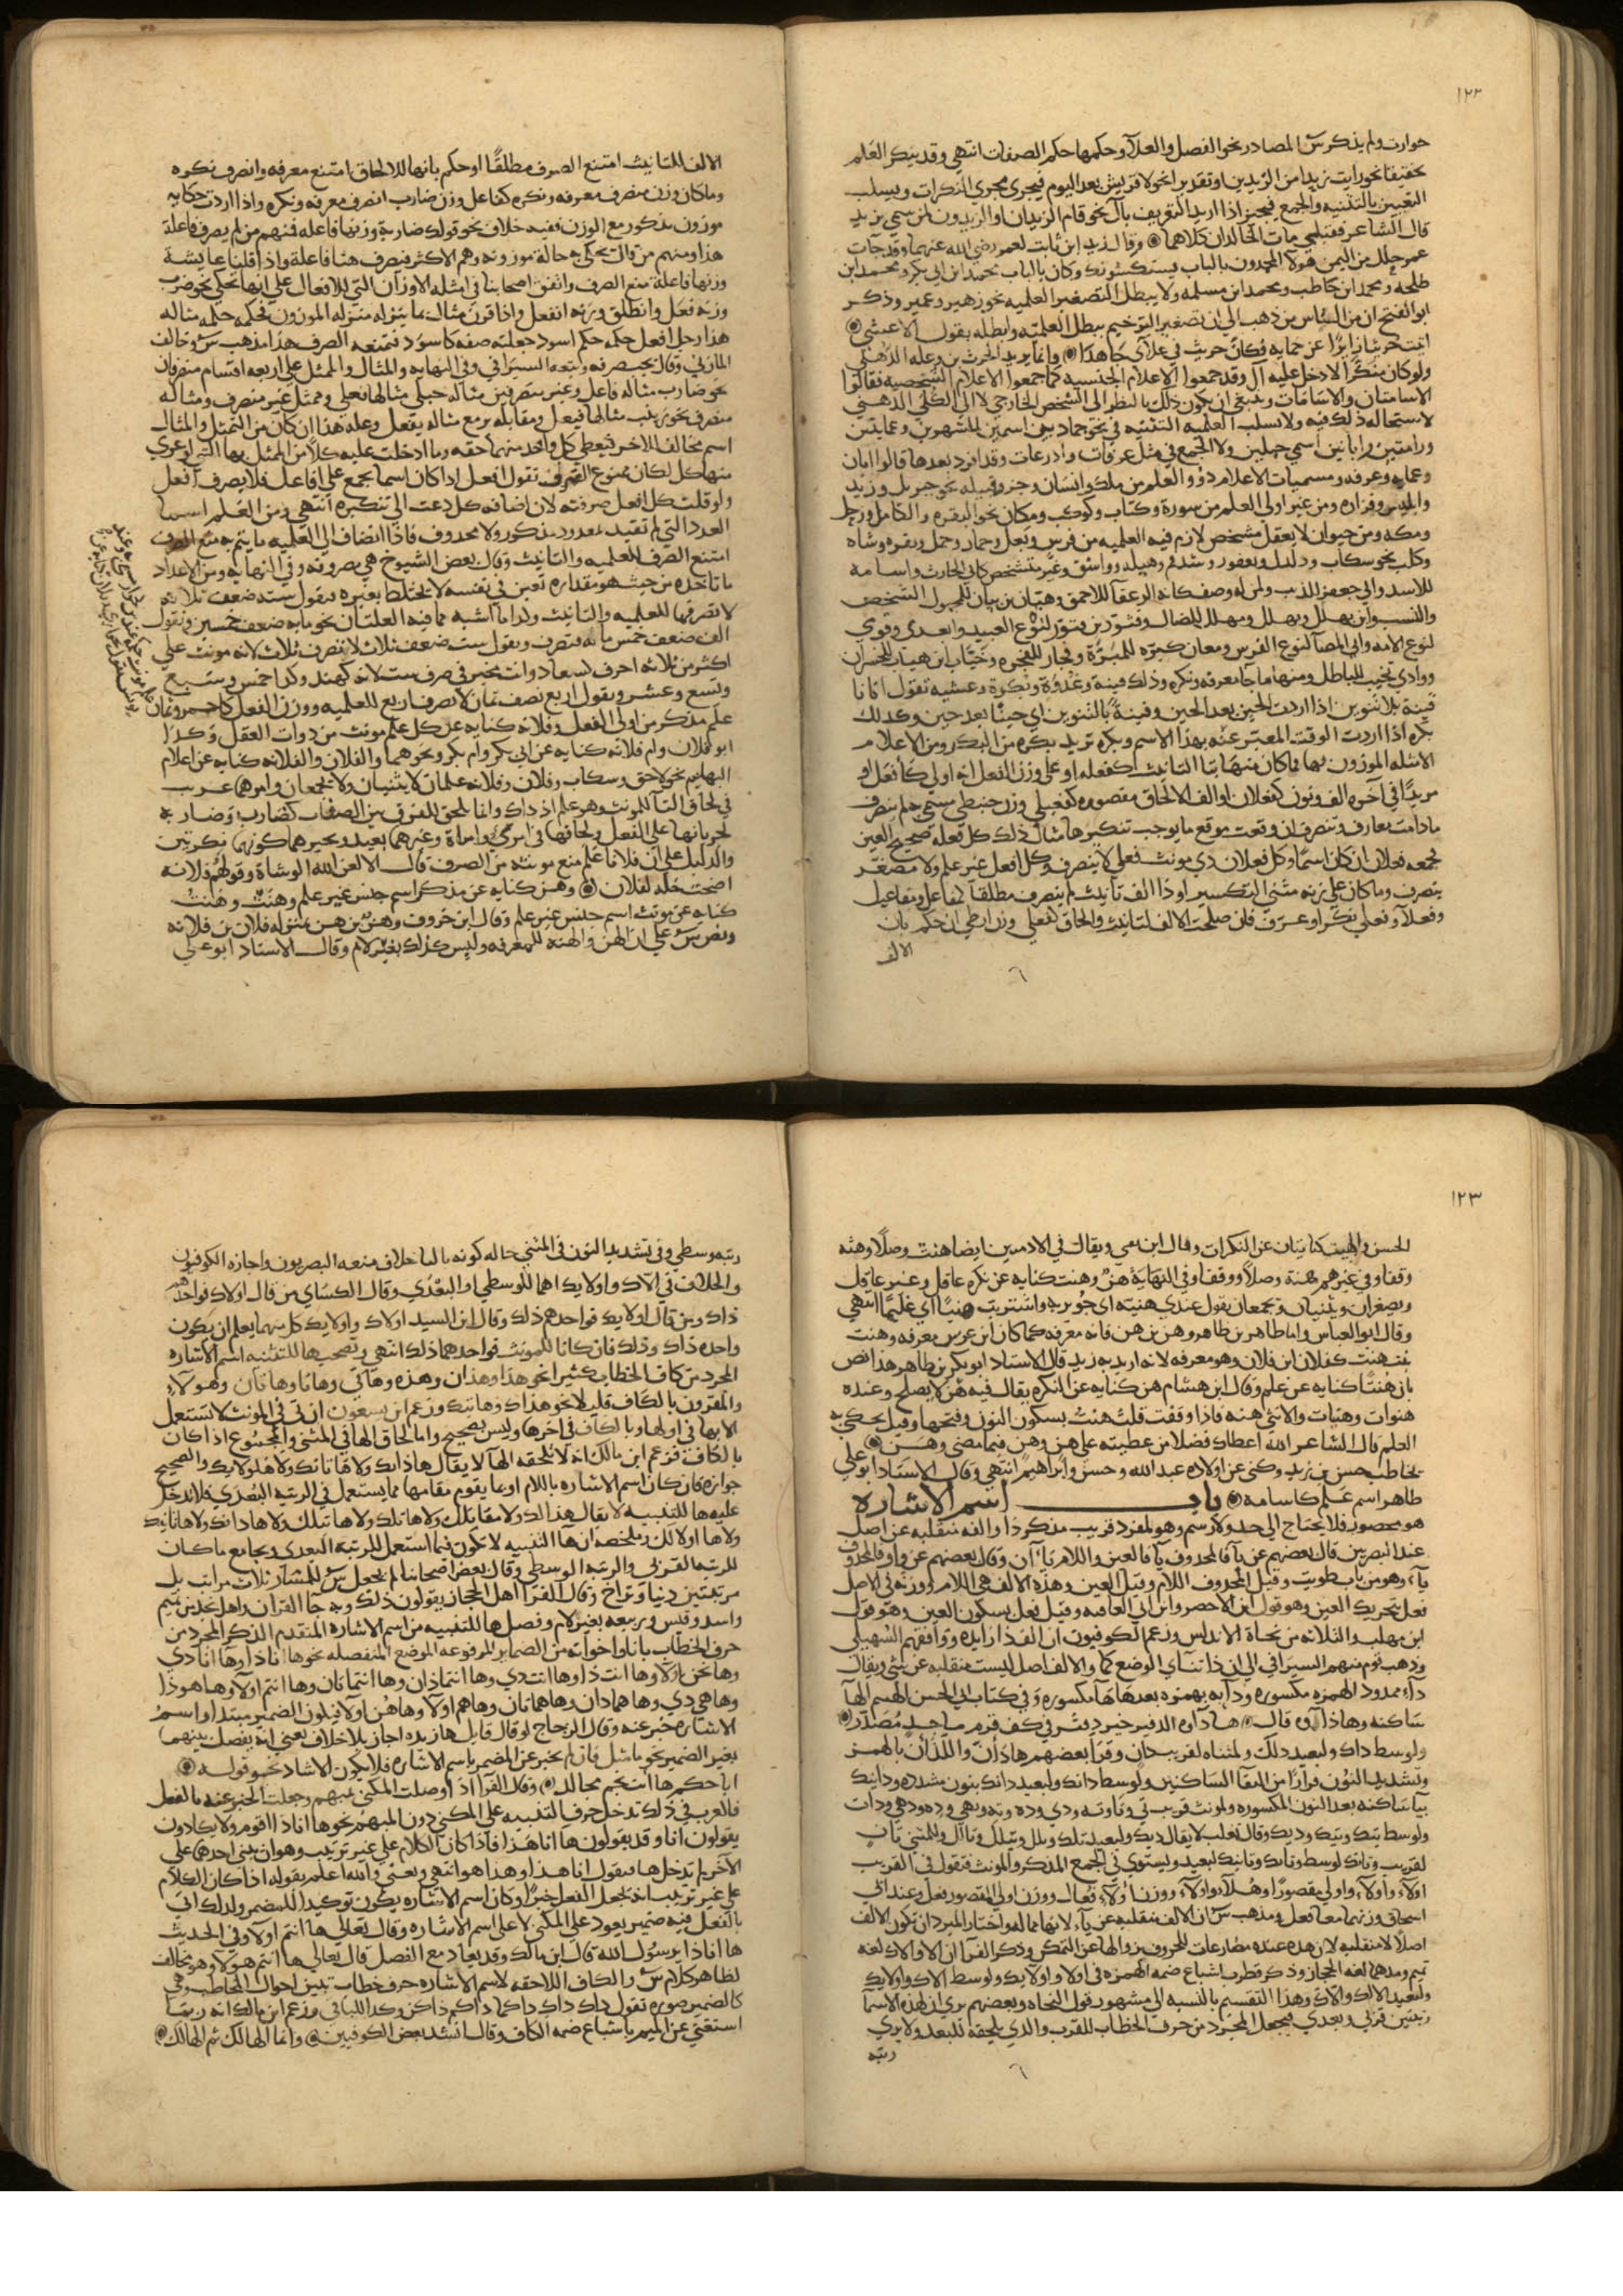 ١٢٢
حوارث ولم يذكر س المصادر نحو الفضل والعلآ وحكمها حكم الصفات انتهي وقد ينكر العلم
تحقيقا نحو رايت زيدا من الزيدين او تقديرا نحو لا قريش بعد اليوم فيجري مجري النكرات ويسلب
التعيين بالتثنيه والجمع فيجبر اذا اريد التعريف بآل نحو قام الزيدان والزيدون لمن سمي بزيد
قال الشاعر فقبلي مات الخالدان كلاهما وقال زيد ابن ثابت لعمر رضي الله عنهما وقد جات
عمر حلل من اليمن هولا المحمدون بالباب يستكسونك وكان بالباب محمد ابن ابي بكر ومحمد ابن
طلحه ومحمد ابن حاطب ومحمد ابن مسلمه ولا يبطل التصغير العلميه نحو زهير وعمير وذكر
ابو الفتح ان من الناس من ذهب الي ان تصغير الترخيم يبطل العلميه وابطله بقول الاعشي
اتيت حريثا زايرا عن جنابه فكان حريث في عطآى جاهدا وانما يريد الحرث بن وعله الذهلي
ولو كان منكرا لادخل عليه آل وقد جمعوا الاعلام الجنسيه كما جمعوا الاعلام الشخصيه فقالوا
الاسامتان والاسامات وينبغي ان يكون ذلك بالنظر الي الشخص الخارجي لا الي الكلي الذهني
لاستحاله ذلك فيه ولا تسلب العلميه التثنيه في نحو جماد بين اسمين المشهورين وعمايتين
ورامتين وابانين اسمي جبلين ولا الجمع في مثل عرفات واذرعات وقد افرد بعدها قالوا ابان
وعمايه وعرفه ومسميات الاعلام ذوو العلم من ملك وانسان وجن وقبيله نحو جبريل وزيد
وابليس وفزاره ومن غير اولي العلم من سورة وكتاب وكوكب ومكان نحو البقره والكامل وزحل
ومكه ومن حيوان لا يعقل مشخص لازم فيه العلميه من فرس وبغل وحمار وجمل وبقره وشاه
وكلب نحو سكاب ودلدل ويعفور وشدقم وهيله وواشق وغير متشخص كابي الحارث واسامه
للاسد وابي جعده للذيب
والنسب
لنوع الامه وابي المضآ لنوع الفرس ومعان كبره للمبره وفجار للفجره وخياب ابن هياب للخسران
ووادي تخيب للباطل ومنها ما جآ معرفه ونكره وذلك فينة وغدوة وبكرة وعشيه تقول اتانا
فينة بلا تنوين اذا اردت الحين بعد الحين وفينةً بالتنوين اي حينا بعد حين وكذلك
بكره اذا اردت الوقت المعبر عنه بهذا الاسم وبكره تريد بكره من البكر ومن الاعلام
الامثله الموزون بها فما كان منها بتا التانيث كفعله او علي وزن الفعل اخه اولي كافعل او
مزيدا في آخره الف ونون كفعلان او الف الالحاق مقصوره كفعنلي وزن حبنطي مسمي به لم ينصرف
ما دامت معارف وتنصرف ان وقعت موقع ما يوجب تنكيرها مثال ذلك كل فعله صحيح العين
تجمعه فعلات ان كان اسما وكل فعلان ذي مونث فعلي لا ينصرف وكل افعل غير علم ولا مصغر
ينصرف وما كان علي زنه متني التكسير او ذا الف تانيث لم ينصرف مطلقا كمفاعل ومفاعيل
وفعلآ وفعلي نكر او عرف فان صلحت الالف لتانيث والحاق كفعلي وزن ارطي ان حكم بان
الالف
الالف للتانيث امتنع الصرف مطلقًا او حكم بانها للالحاق امتنع معرفه وانصرف نكره
وما كان وزن منصرف معرفه ونكره كفاعل وزن ضارب انصرف معرفه ونكره واذا اردت حكايه
موزون مذكور مع الوزن ففيه خلاف نحو قولك ضاربة وزنها فاعله فمنهم من لم يصرف فاعلة
هذا ومنهم من قال يحكي به حالة موزونه وهم الاكثر فيصرف هنا فاعلة واذا قلنا عايشة
وزنها فاعلة منع الصرف واتفق اصحابنا في امثله الاوزان التي للافعال علي انها تحكي نحو ضرب
وزنه فعل وانطلق وزنه انفعل واذا قرن مثال بما ينزله منزله الموزون فحكمه حكمه مثاله
هذا رجل افعل حكمه حكم اسود جعلته صفه كاسود فتمنعه الصرف هذا مذهب س وخالف
المازني وقال يجب صرفه وتبعه السيرافي وفي النهايه والمثال والممثل علي اربعه اقسام منصرفان
نحو ضارب مثاله فاعل وغير منصرفين مثاله حبلي مثالها فعلي وممثل غير منصرف ومثاله
منصرف نحو زينب مثالها فيعل ومقابله يرمع مثاله يفعل وعله هذا ان كان من التمثل والمثال
اسم مخالف للاخر فيعطي كل واحد منهما حقه وما ادخلت عليه كلا من المثل بها
منها كل لكان ممنوع الصرف تقول افعل اذا كان اسما يجمع علي افاعل فلا يصرف افعل
ولو قلت كل افعل صرفته لان اضافه كل دعت الي تنكيره انتهي ومن العلم اسما
العدد التي لم تقيد لمعدود مذكور ولا محذوف فاذا انضاف الي العلميه ما يتم به منع الصرف
امتنع الصرف للعلميه والتانيث وقال بعض الشيوخ هي مصروفه وفي النهايه ومن الاعداد
ما تاخذه من حيث هو مقداره تعين في نفسه لا يختلط بغيره فيقول سته ضعف ثلاثه
لا تصرفها للعلميه والتانيث وكذا ما اشبه مما فيه العلتان نحو مايه ضعف خمسين وتقول
الف ضعف خمس مائه فتصرف وتقول ست ضعف ثلاث لا تصرف ثلاث لانه مونث علي
اكثر من ثلاثه احرف كسعاد وانت مخير في صرف ست لانه كهند وكذا خمس وسبع
وتسع وعشر وتقول اربع نصف ثمان لا تصرف اربع للعلميه ووزن الفعل كاحمر وفلان
علم مذكر من اولي الفعل وفلانه كنايه عن كل علم مونث من ذوات العقل وكذا
ابو فلان وام فلانه كنايه عن ابي بكر وام بكر ونحوهما والفلان والفلانه كنايه عن اعلام
البهايم نحو لاحق وسكاب وفلان وفلانه علمان لا يثنيان ولا يجمعان وامرهما غريب
في لحاق التآ للمونث وهو علم اذ ذاك وانما تلحق للفرق بين الصفات كضارب وضاربه
لجريانها علي الفعل ولحاقها في امرئ وامراة وغيرهما بعيد ونحيرهما كونها نكرتين
والدليل علي ان فلانا علم منع مونثه من الصرف قال الا لعن الله الوشاة وقولهم فلانه
اضحت خله لفلان وهن كنايه عن مذكر اسم جنس غير علم وهنت وهنت
كنايه عن مونث اسم جنس غير علم وقال ابن خروف وهن بن هن بمنزله فلان بن فلانه
ونص س علي ان الهن والهنه للمعرفه وليس كذلك بغير لام وقال الاستاذ ابو علي
١٢٣
الحسن والهيت كنايتان عن النكرات وقال ابن يعي ويقال في الادميين ايضا هنت وصلًا وهنه
وقفا وفي غيرهم هنة وصلًا ووقفا وفي النهاية هن وهنت كنايه عن نكره عاقل وغير عاقل
ويصغران ويثنيان ويجمعان يقول عندي هنيه اي جويريه واشتريت هنيا اي غليما انتهي
وقال ابو العباس واما طاهر بن طاهر وهن بن هن فانه معرفه كما كان ابن عرس معرفه وهنت
بنت هنت كفلان ابن فلان وهو معرفه لانه اريد به زيد قال الاستاذ ابو بكر بن طاهر هذا نص
بان هنتا كنايه عن علم وقال ابن هشام هن كنايه عن النكره يقال فيه هن لا يصلح وعنده
هنوات وهنيات والانثي هنه فاذا وقفت قلت هنت بسكون النون وفتحها وقيل يحكي به
العلم قال الشاعر الله اعطاك فضلا من عطيته علي هن وهن فيما مضي وهن
يخاطب حسن بن زيد وكني عن اولاده عبد الله وحسن وابراهيم انتهي وقال الاستاذ ابو علي
طاهر اسم علم كاسامه باب اسم الاشاره
هو محصور فلا يحتاج الي حد ولا رسم وهو لمفرد قريب مذكر ذا والفه منقلبه عن اصل
عند البصريين قال بعضهم عن يآ فالمحذوف يآ فالعين واللام يآان وقال بعضهم عن واو فالمحذوف
يآء وهو من باب طويت وقيل المحذوف اللام وقيل العين وهذه الالف هي اللام ووزنه في الاصل
فعل بتحريك العين وهو قول ابن الاخضر وابن ابي العافيه وقيل فعل بسكون العين وهو قول
ابن مهلب والثلاثه من نحاة الاندلس وزعم الكوفيون ان الف ذا زايده ووافقهم السهيلي
وذهب قوم منهم السيرافي الي ان ذا ثنائي الوضع كما والالف اصل ليست منقلبه عن شي ويقال
ذآء ممدود الهمزه مكسوره وذآيه بهمزه بعدها هآ مكسوره وفي كتاب ابي الحسن الهيثم الهآ
ساكنه وهاذآه قال هاذآؤه الدفتر خير دفتر في كف قرم ماجد مصدر
ولوسط ذاك ولبعيد ذلك ولمثناه لقريب ذان وقرا بعضهم هاذان واللذان بالهمز
وتشديد النون فرارًا من التقآ الساكنين ولوسط ذانك ولبعيد ذانك بنون مشدده وذاينك
بيا ساكنه بعد النون المكسوره ولمونث قريب تي وتا وته وذي وذه وته وتهي وذه وذهي وذات
ولوسط تيك وتيك وذيك وقال ثعلب لا يقال ذيك ولبعيد تلك وتلك وتيلك وتالك ولمثني تان
لقريب وتانك لوسط وتانك وتانيك لبعيد ويستوي في الجمع المذكر والمونث فتقول في القريب
اولآء واولآء واولي مقصورًا وهؤلآء واولآء ووزن اولآء فعال ووزن اولي المقصور فعل وعند ابي
اسحاق وزنهما معا فعل ومذهب س ان الالف منقلبه عن يآء لانها ممالة واختار المبرد ان تكون الالف
اصلًا لا منقلبه لان هذه عنده مضارعات للحروف بزوالها عن التمكن وذكر الفرآ ان الاولاك لغه
تميم ومدهما لغه الحجاز وذكر قطرب اشباع ضمه الهمزه في اولآ واولايك ولوسط الاك واولايك
ولبعيد الالك والاك وهذا التقسيم بالنسبه الي مشهور قول النحاه وبعضهم يري ان لهذه الاسمآ
رتبتين قربي وبعدي فيجعل المجرد من حرف الخطاب للقرب والذي يلحقه للبعد ولا يري
رتبه
رتبه وسطي وفي تشديد النون في المثني حاله كونه باليا خلاف منعه البصريون واجازه الكوفيون
والخلاف في الاك واولايك اهما للوسطي او البعدي وقال الكساي من قال اولاك فواحدهم
ذاك ومن قال اولايك فواحدهم ذلك وقال ابن السيد اولاك واولايك كل منهما يعلم ان يكون
واحده ذاك وذلك فان كانا للمونث فواحدهما ذلك انتهي وتصحب ها للتنبيه اسم الاشاره
المجرد من كاف الخطاب كثيرا نحو هذا وهذان وهذه وهاتي وهاتا وهاتان وهولآء
والمقرون بالكاف قليلا نحو هذاك وهاتيك وزعم ابن يسعون ان تي في المونث لا تستعمل
الا بها في اولها وبالكاف في اخرها وليس بصحيح واما الحاق الها في المثني والمجموع اذا كان
بالكاف فزعم ابن مالك انه لا تلحقه الهآ لا يقال هاذانك ولا هاتانك ولا هولايك والصحيح
جوازه فان كان اسم الاشاره باللام او بما يقوم مقامها مما يستعمل في الرتبه البعدي فلا تدخل
عليه ها للتنبيه لا يقال هذالك ولا هاتلك ولا هاتيلك ولا هاذانك ولا هاتانيك
ولا ها اولالك وملخصه ان ها التنبيه لا تكون فيما استعمل للرتبه البعدي وتجامع ما كان
للرتبه القربي والرتبه الوسطي وقال بعض اصحابنا لم يجعل س للمشار ثلاث مراتب بل
مرتبتين دنيا وتراخ وقال الفرآ اهل الحجاز يقولون ذلك وبه جآ القران واهل نجد من تميم
واسد وقيس وربيعه بغير لام وفصل ها للتنبيه من اسم الاشاره المتقدم الذكر المجرد من
حرف الخطاب بانا واخواته من الضماير المرفوعه الموضع المنفصله نحو ها انا ذا وها انا ذي
وها نحن اولآ وها انت ذا وها انت ذي وها انتما ذان وها انتما تان وها انتم اولآ وها هو ذا
وها هي ذي وها هما ذان وها هما تان وها هم اولآ وها هن اولآ فيكون الضمير مبتدا واسم
الاشاره خبر عنه وقال الزجاج لو قال قايل ها زيد ذا جاز بلا خلاف يعني انه يفصل بينهما
بغير الضمير نحو ما مثل فان لم يخبر عن المضمر باسم الاشاره فلا يكون الا شاذ نحو قوله
ابا حكم ها انت نجم مجالد وقال الفرآ اذا وصلت المكني بمبهم وجعلت الخبر عنه بالفعل
فالعرب في ذلك تدخل حرف التنبيه علي المكني دون المبهم نحو ها انا ذا اقوم ولا يكادون
يقولون انا وقد يقولون ها انا هذا فاذا كان الكلام علي غير ترتيب وهو ان يبني احدهما علي
الآخر لم تدخل ها فيقول انا هذا وهذا هو انتهي ويعني والله اعلم بقوله اذا كان الكلام
علي غير ترتيب انه يجعل الفعل خبرًا وكان اسم الاشاره يكون توكيدا للمضمر ولذلك اتي
بالفعل فيه ضمير يعود علي المكني لا علي اسم الاشاره وقال تعالي ها انتم اولآ وفي الحديث
ها انا ذا يرسول الله قال ابن مالك وقد يعاد مع الفصل قال تعالي ها انتم هولآء وهو مخالف
لظاهر كلام س والكاف اللاحقه لاسم الاشاره حرف خطاب تبين احوال المخاطب وهي
كالضمير صوره تقول ذاك ذاك ذاكما ذاكم ذاكن وكذا الباقي وزعم ابن مالك انه ربما
استغني عن الميم باشباع ضمه الكاف وقال انشد بعض الكوفيين وانما الهالك ثم الهالك